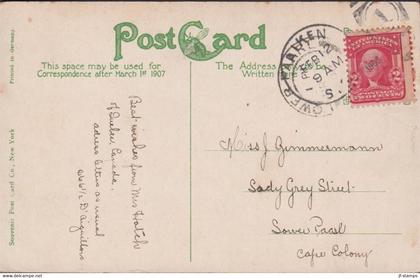 Post Card
This space may be used for
Correspondence after March 1st 1907
The Address
Written
Printed in Germany.
Souvenir Post Card Co., New York
Best wishes from Mrs Hatch
of Quebec Canada.
adress letters as usual
266½ D'aiguillon
LOWER PAARL
FEB
9 AM
2 2
Miss J. Zimmermann
Lady Grey Street
Lower Paarl
Cape Colony